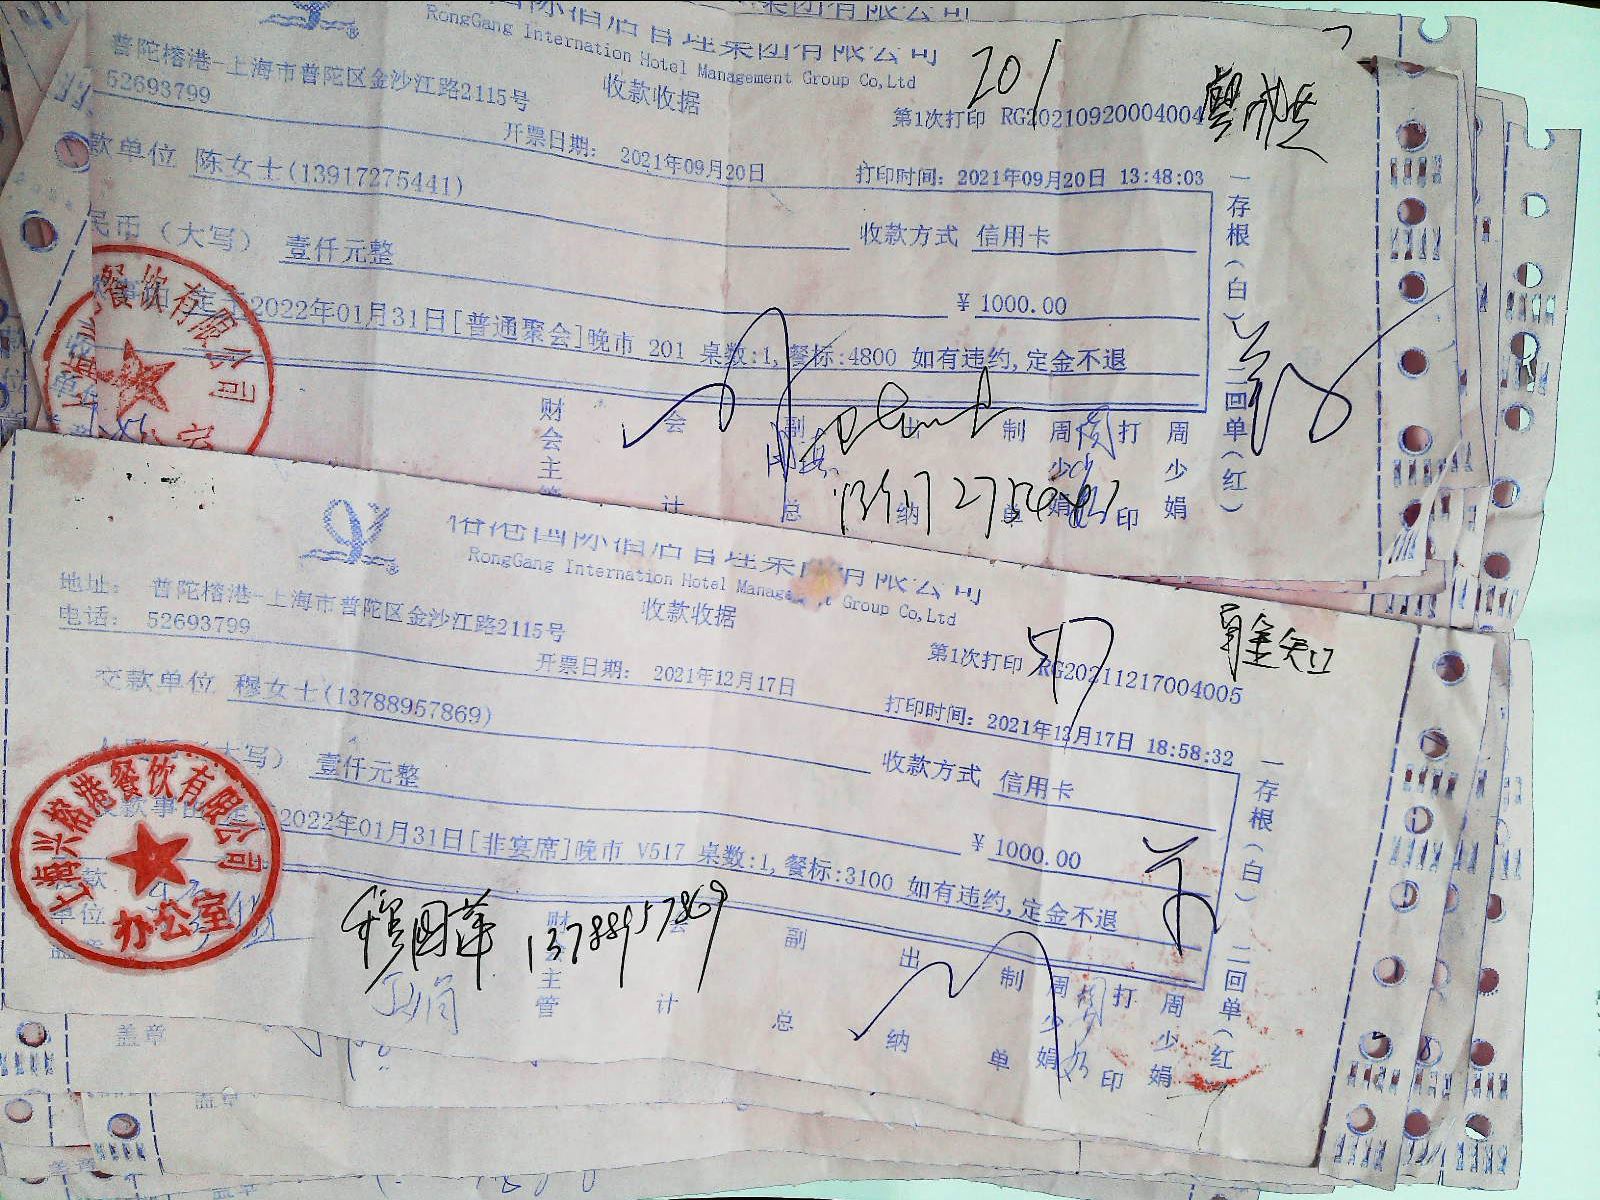 RongGang International Hotel Management Group Co,Ltd
普陀榕港-上海市普陀区金沙江路2115号
52693799
收款收据
201
第1次打印 RG20210920004004
开票日期: 2021年09月20日
打印时间: 2021年09月20日 13:48:03
款单位 陈女士(13917275441)
民币（大写） 壹仟元整
收款方式 信用卡
¥ 1000.00
2022年01月31日[普通聚会]晚市 201 桌数:1,餐标:4800 如有违约,定金不退
餐饮有限公司
财会主管 会计 副总 出纳 制单 周少娟 打印 周少娟
一存根(白) 二回单(红)
榕港国际酒店管理集团有限公司
RongGang International Hotel Management Group Co,Ltd
地址: 普陀榕港-上海市普陀区金沙江路2115号
电话: 52693799
收款收据
第1次打印 RG20211217004005
开票日期: 2021年12月17日
打印时间: 2021年12月17日 18:58:32
交款单位 穆女士(13788957869)
(大写) 壹仟元整
收款方式 信用卡
¥ 1000.00
2022年01月31日[非宴席]晚市 V517 桌数:1,餐标:3100 如有违约,定金不退
上海兴榕港餐饮有限公司
办公室
穆国萍 13788957869
财会主管 会计 副总 出纳 制单 周少娟 打印 周少娟
一存根(白) 二回单(红)
盖章